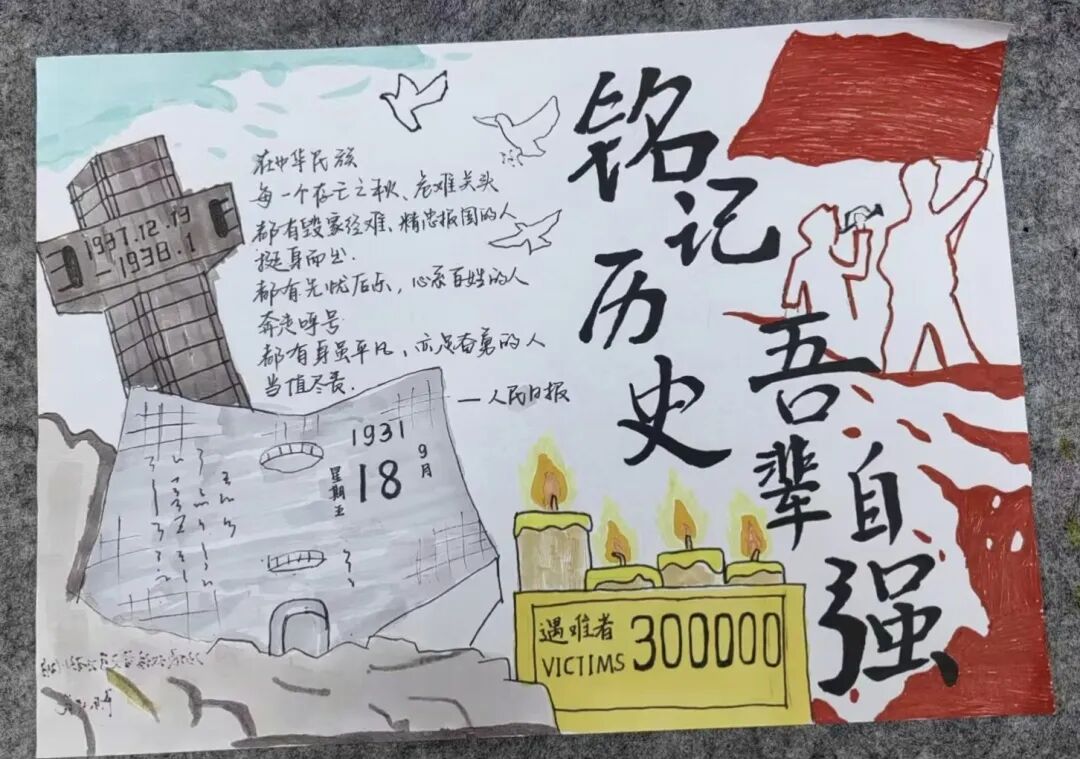 铭记
历史
吾辈
自强
在中华民族
每一个存亡之秋、危难关头
都有毁家经难、精忠报国的人
挺身而出.
都有先忧后乐，心系百姓的人
奔走呼号
都有身虽平凡、亦是奋勇的人
当值尽责.
—人民日报
1937.12.13
—1938.1
1931
9月
18
星期五
遇难者 300000
VICTIMS